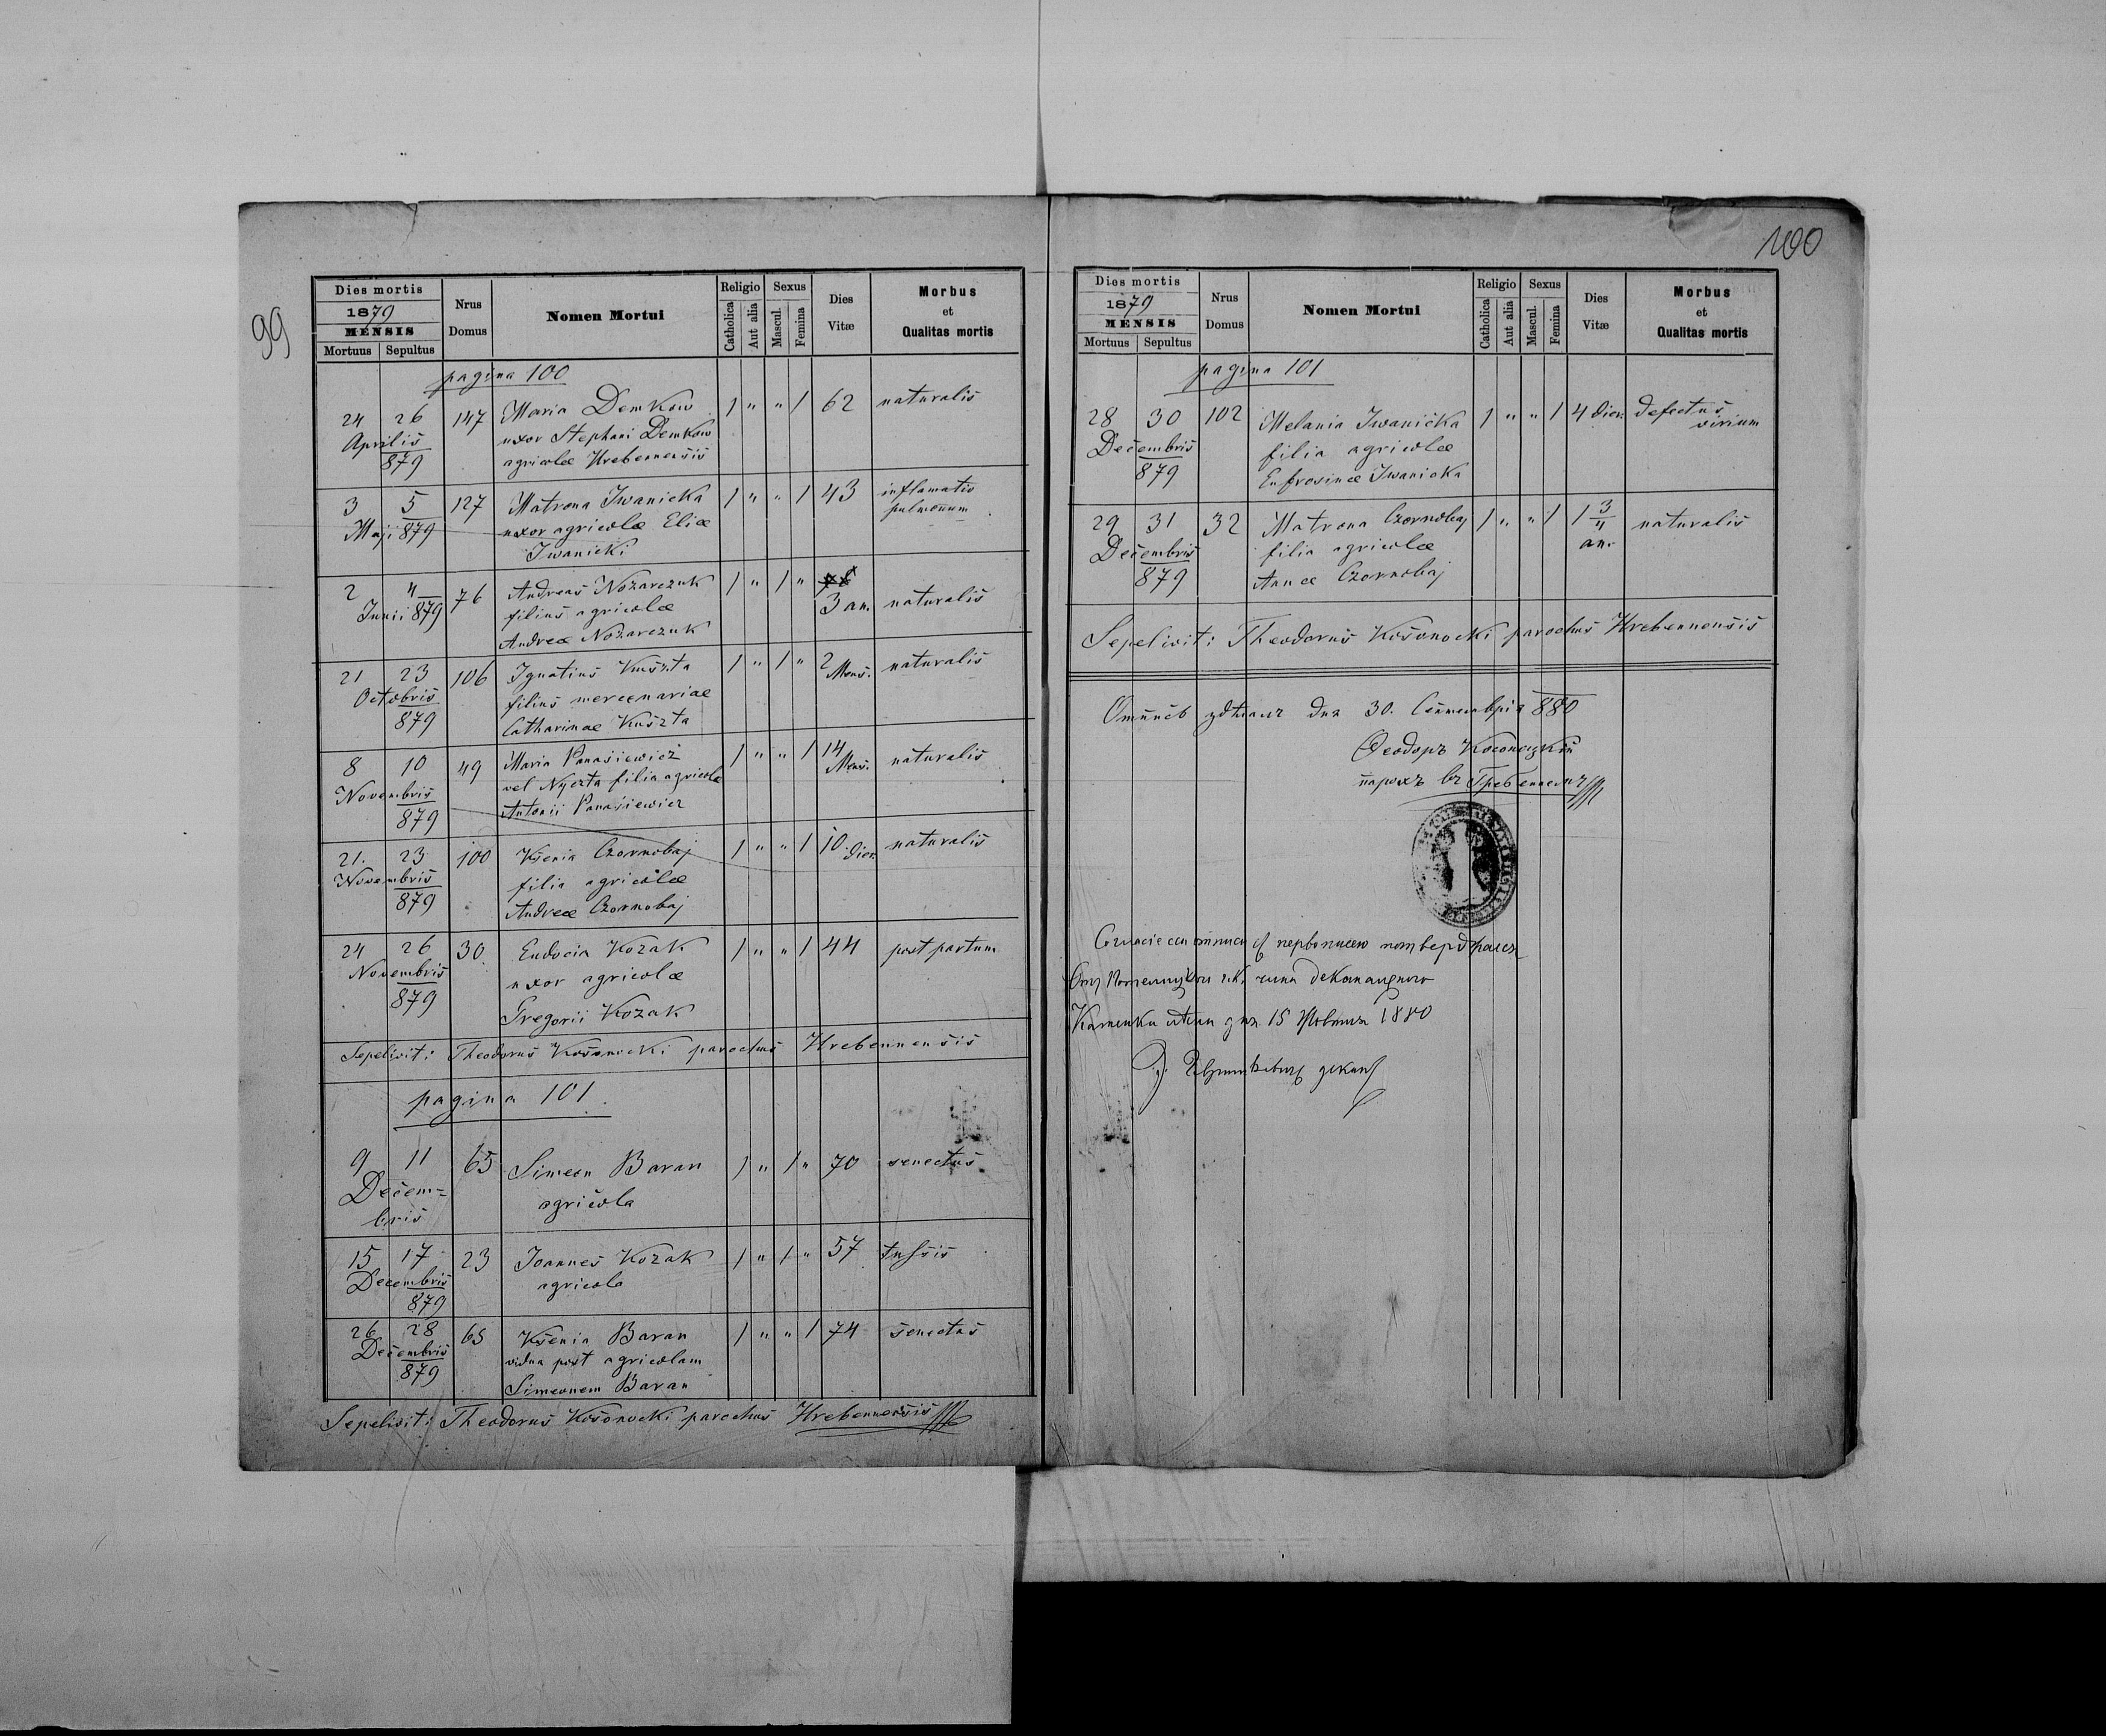 99
Dies mortis
1879
MENSIS
Mortuus Sepultus
Nrus
Domus
Nomen Mortui
Religio
Catholica
Aut alia
Sexus
Mascul.
Femina
Dies
Vitæ
Morbus
et
Qualitas mortis
pagina 100
24 26 147 Maria Demkow 1 " " 1 62 naturalis
Aprilis uxor Stephani Demkow
879 agricolæ Hrebennensis
3 5 127 Matrona Iwanicka 1 " " 1 43 inflamatio
Maji 879 uxor agricolæ Eliæ pulmonum
Iwanicki
2 " 76 Andreas Nożarczuk 1 " 1 "
Junii 879 filius agricolæ 3 an. naturalis
Andreæ Nożarczuk
21 23 106 Ignatius Kuszta 1 " 1 " 2 Mens. naturalis
Octobris filius mercenariae
879 Catharinae Kuszta
8 10 49 Maria Panasiewicz 1 " " 1 14 Mens. naturalis
Novembris vel Nyczta filia agricolæ
879 Antonii Panasiewicz
21. 23 100 Ksenia Czornobaj 1 " " 1 10 dier. naturalis
Novembris filia agricolæ
879 Andreæ Czornobaj
24 26 30 Eudocia Kozak 1 " " 1 44 post partum
Novembris uxor agricolæ
879 Gregorii Kozak
Sepelivit: Theodorus Kosonocki parochus Hrebennensis
pagina 101.
9 11 65 Simeon Baran 1 " 1 " 70 senectus
Decem= agricola
bris
15 17 23 Joannes Kozak 1 " 1 " 57 tussis
Decembris agricola
879
26 28 65 Ksenia Baran 1 " " 1 74 senectus
Decembris vidua post agricolam
879 Simeonem Baran
Sepelivit: Theodorus Kosonocki parochus Hrebennensis
100
Dies mortis
1879
MENSIS
Mortuus Sepultus
Nrus
Domus
Nomen Mortui
Religio
Catholica
Aut alia
Sexus
Mascul.
Femina
Dies
Vitæ
Morbus
et
Qualitas mortis
pagina 101
28 30 102 Melania Iwanicka 1 " " 1 4 dier. defectus
Decembris filia agricolæ virium
879 Eufrosinæ Iwanicka
29 31 32 Matrona Czornobaj 1 " " 1 1 3/" naturalis
Decembris filia agricolæ an.
879 Annæ Czornobaj
Sepelivit: Theodorus Kosonocki parochus Hrebennensis
дня 30. Септемврія 880
Ѳеодоръ Косоноцкій
парохъ въ Гребенномъ
Согласіе сеи отписи съ первописею потверджаеся
деканального
Каменки дня 15 1880
декан